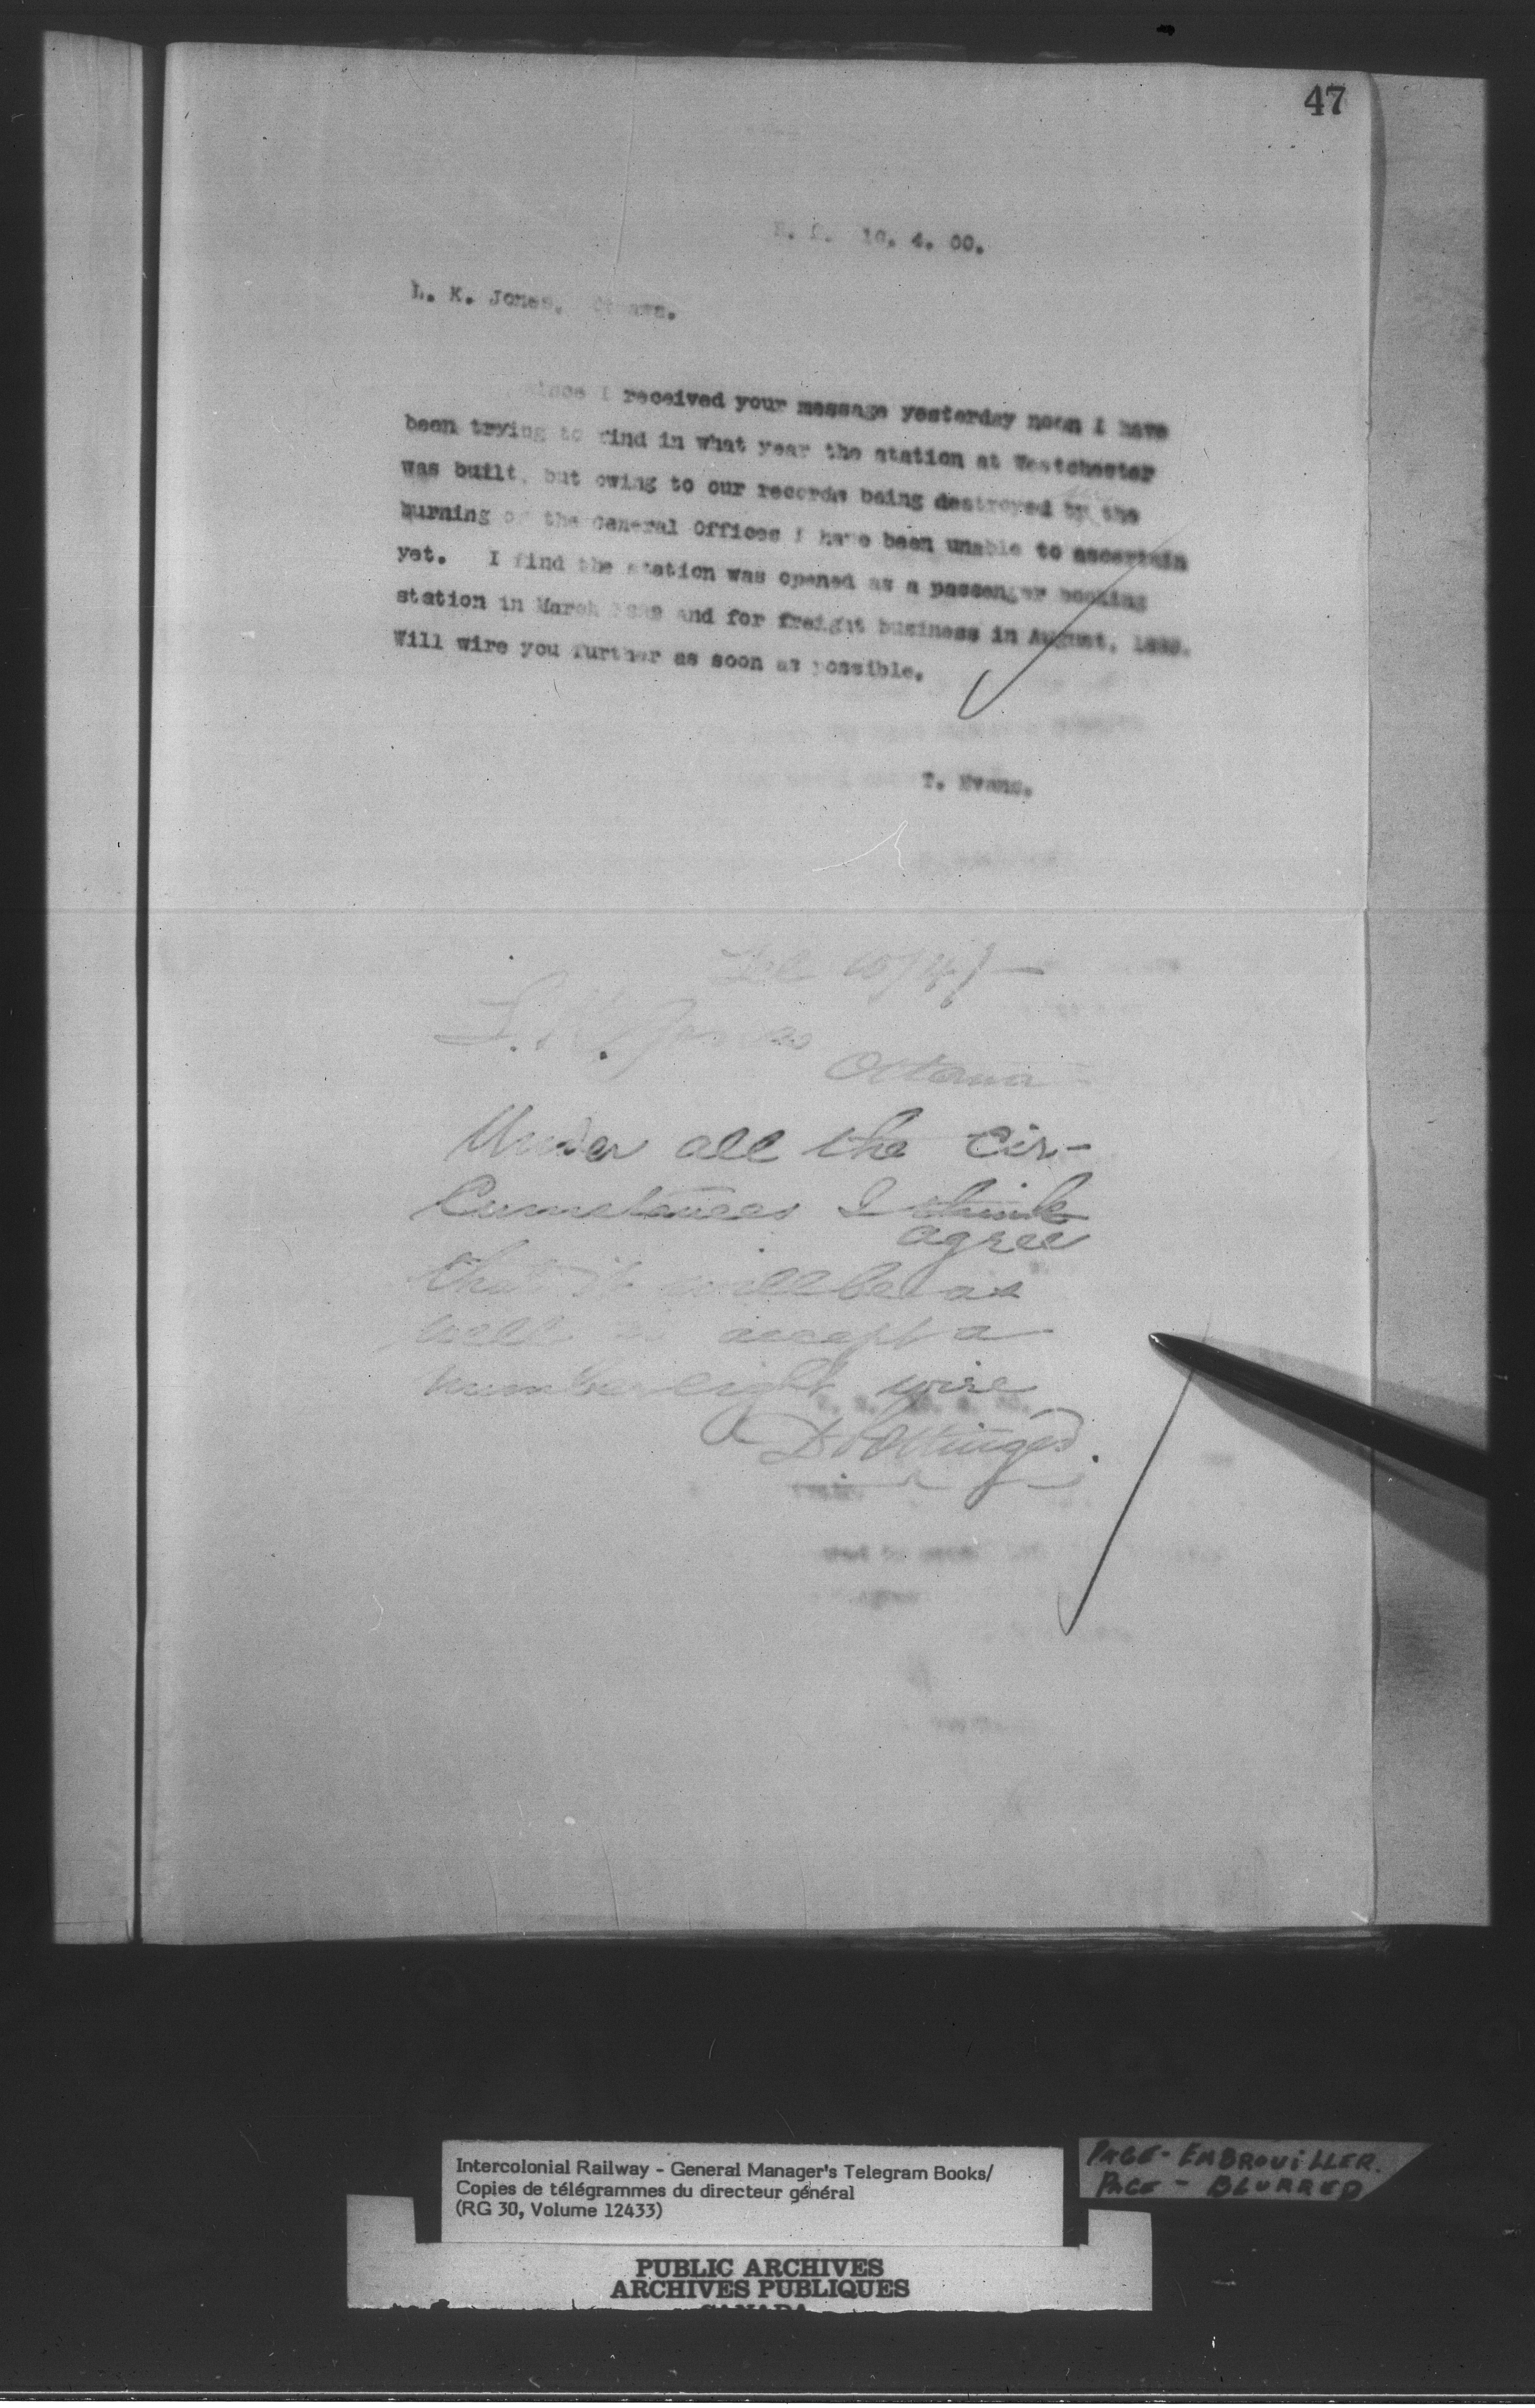 47
10. 4. 00.
L. K. Jones. Ottawa.
Since I received your message yesterday noon I have
been trying to find in what year the station at Westchester
was built, but owing to our records being destroyed by the
burning of the General Offices I have been unable to ascertain
yet. I find the station was opened as a passenger booking
station in March and for freight business in August,
Will wire you further as soon as possible.
T. Evans.
L. K. Jones
Ottawa
Under all the Cir-
cumstances I think
agree
that it will be as
well to accept a
number eight wire
D Pottinger.
Intercolonial Railway - General Manager's Telegram Books/
Copies de télégrammes du directeur général
(RG 30, Volume 12433)
PAGE - EMBROUILLER.
PAGE - BLURRED
PUBLIC ARCHIVES
ARCHIVES PUBLIQUES
CANADA